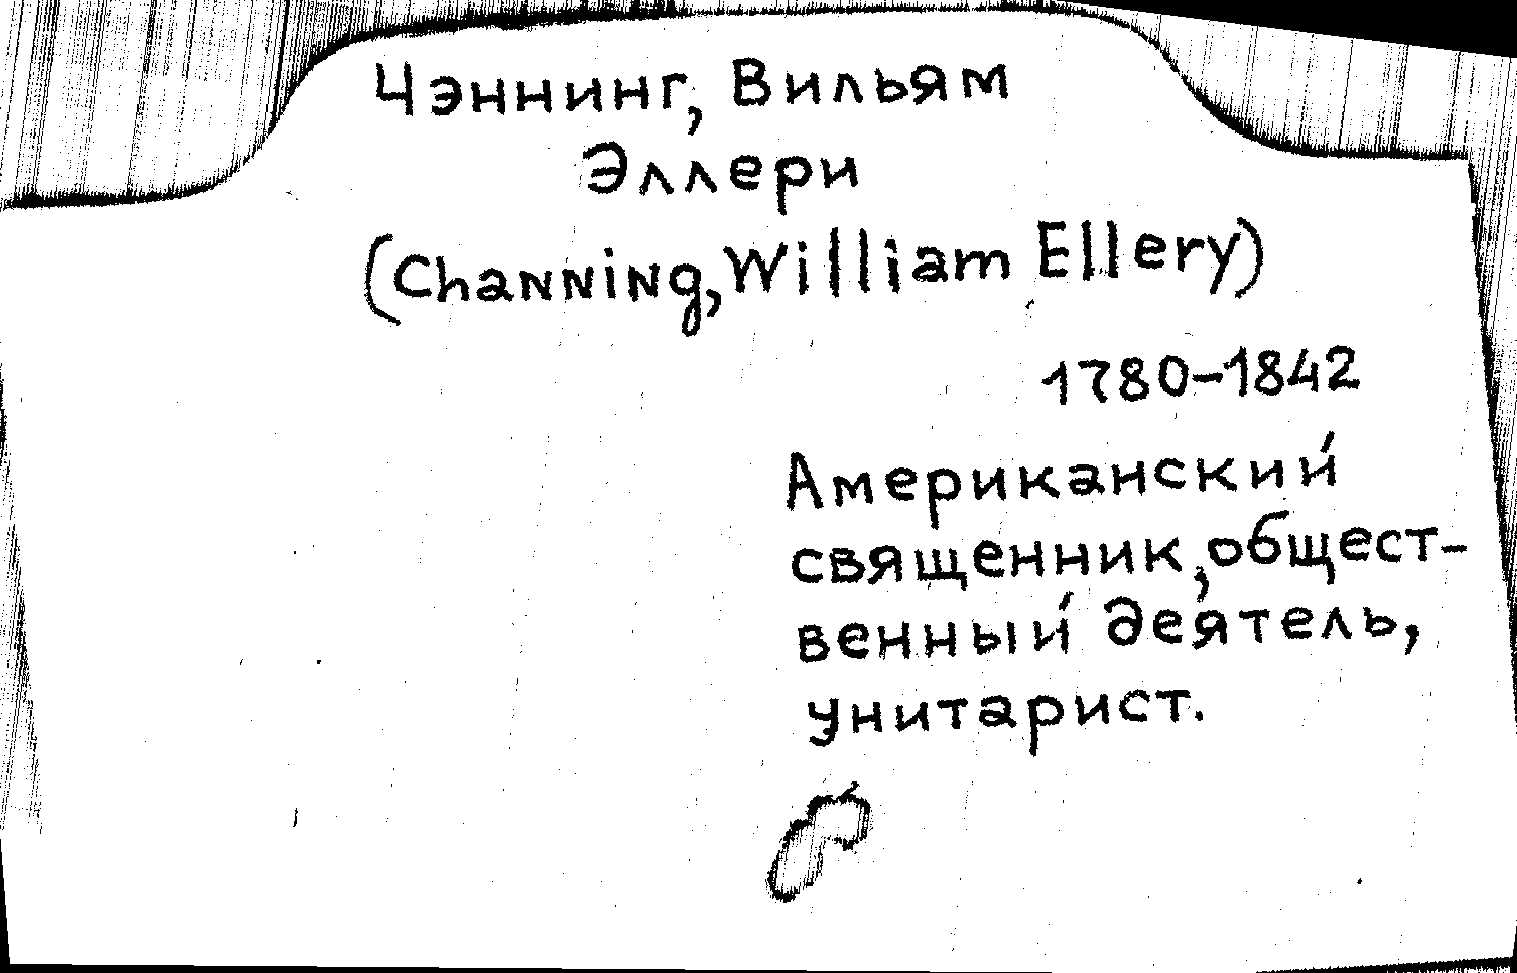 Чэннинг, Вильям
Эллери
(Channing, William Ellery)
1780-1842
Американский
священник, общест-
венный деятель,
унитарист.